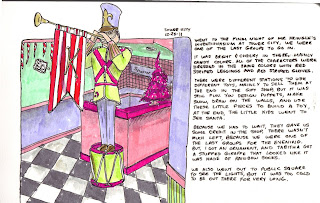 TOWER CITY
12-23-11
WENT TO THE FINAL NIGHT OF MR. KRINGLE'S
INVENTIONASIUM AT TOWER CITY. WE WERE
ONE OF THE LAST GROUPS TO GO IN.
IT WAS VERY CHEERY IN THERE, MAINLY
CANDY COLORS. ALL OF THE CHARACTERS WERE
DRESSED IN THE SAME COLORS WITH RED
STRIPED LEGGINGS AND RED STRIPED GLOVES.
THERE WERE DIFFERENT STATIONS TO USE
DIFFERENT TOYS, MAINLY TO SELL THEM AT
THE END IN THE GIFT SHOP BUT IT WAS
STILL FUN. YOU DESIGN PUPPETS, MAKE
SNOW, DRAW ON THE WALLS, AND USE
THESE LITTLE PIECES TO BUILD A TOY.
AT THE END, THE LITTLE KIDS WENT TO
SEE SANTA.
BECAUSE WE HAD TO WAIT THEY GAVE US
SOME CREDIT IN THE SHOP. THERE WASN'T
MUCH LEFT, BECAUSE WE WERE ONE OF
THE LAST GROUPS FOR THE EVENING.
BUT I GOT AN ORNAMENT, AND TABITHA GOT
A STUFFED GIRAFFE THAT LOOKED LIKE IT
WAS MADE OF RAINBOW SOCKS.
WE ALSO WENT OUT TO PUBLIC SQUARE
TO SEE THE LIGHTS, BUT IT WAS TOO COLD
TO BE OUT THERE FOR VERY LONG.